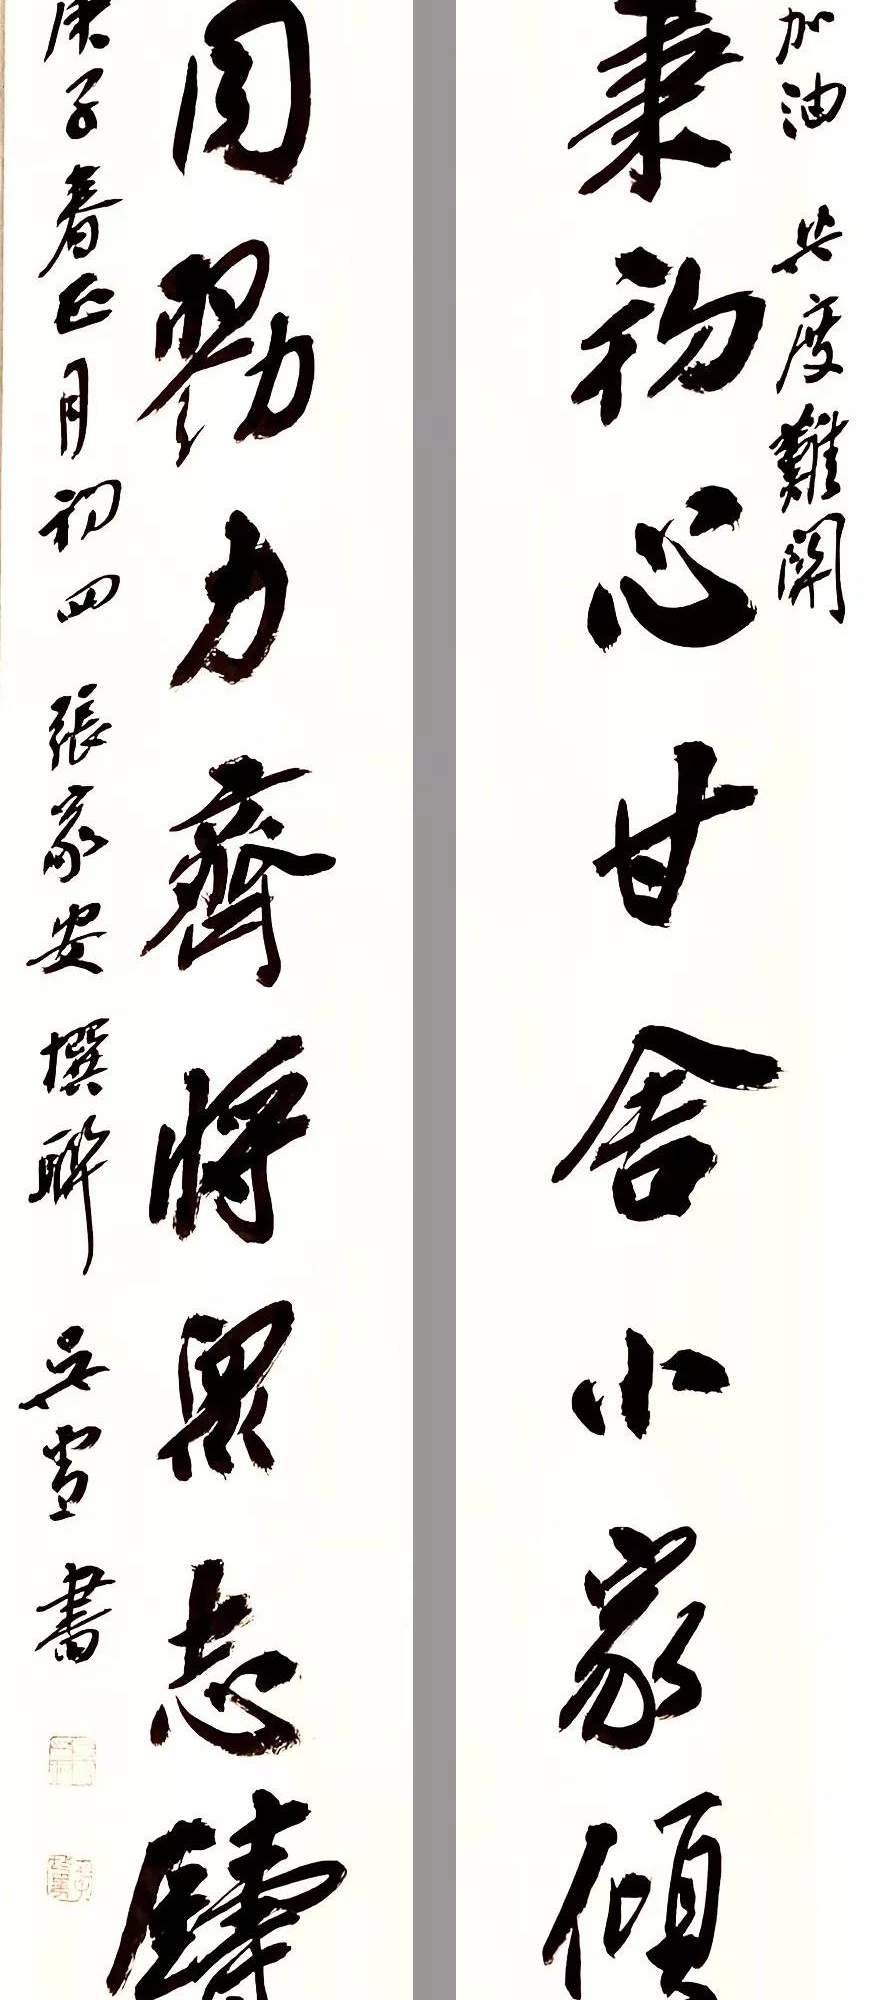 加油 共度難關
秉初心甘舍小家傾
同勠力齊將眾志鑄
庚子春正月初四 張家安 撰聯 吳雪 書